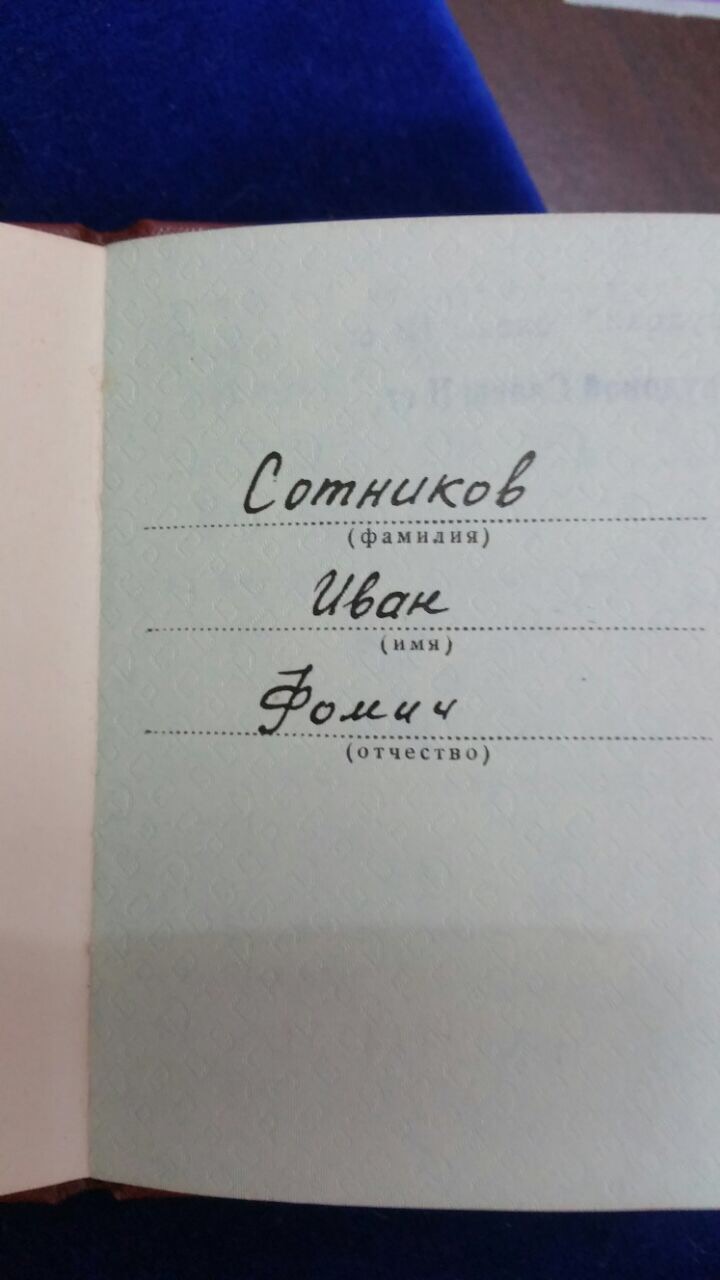 Сотников
(фамилия)
Иван
(имя)
Фомич
(отчество)